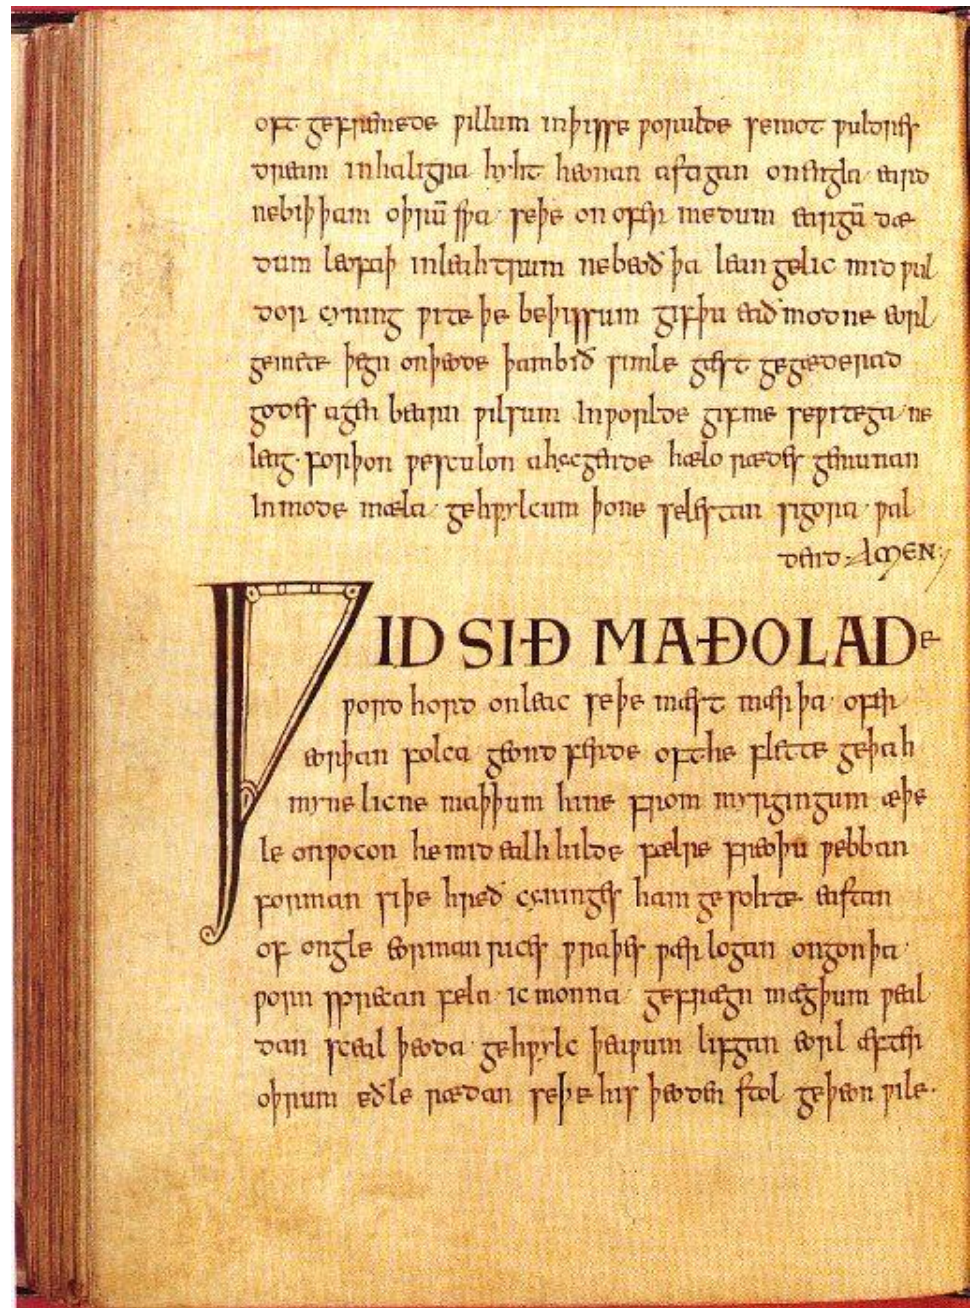 oft gefremede ƿillum inþisse ƿorulde se mot ƿuldres
dream inhaligra hyht heonan astigan onengla eard
nebiþ þam oþrū sƿa seþe on ofer medum eargū dæ
dum leofaþ inleahtrum nebeoð þa lean gelic mid ƿul
dor cyning ƿite þe beþissum gif þu eað modne eorl
gemete þegn onþeode þam bið simle gæst gegæderad
godes agen bearn ƿilsum inƿorlde gif me se ƿitega ne
leag forþon ƿe sculon a hycgende hælo rædes gemunan
In mode mæla gehƿylcum þone selestan sigora ƿal
dend · AMEN:
ǷID SIÐ MAÐOLADe
ƿord hord onleac seþe mæst mærþa ofer
eorþan folca geond ferde oft he flette geþah
mynelicne maþþum hine from myrgingum æþe
le onƿocon he mid ealhhilde fælre freoþu ƿebban
forman siþe hreð cyninges ham gesohte eastan
of ongle eormanrices ƿraþes ƿærlogan ongon þa
ƿorn sprecan fela ic monna gefrægn mægþum ƿeal
dan sceal þeoda gehƿylc þeaƿum lifgan eorl æfter
oþrum eðle rædan seþe his þeoden stol geþeon ƿile·